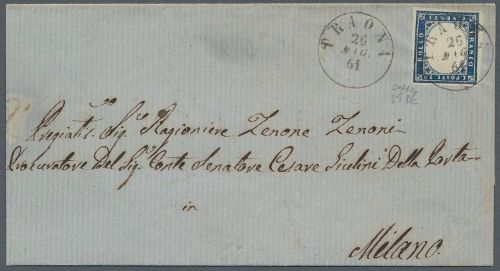 TRAONA
26
61
TRAONA
26
61
FRANCO
BOLLO
C. VENTI
C. POSTE
Pregiatis. Sig.º Ragioniere Zenone Zenoni
Procuratore Del Sig.r Conte Senatore Cesare Giulini Della Porta
in
Milano.